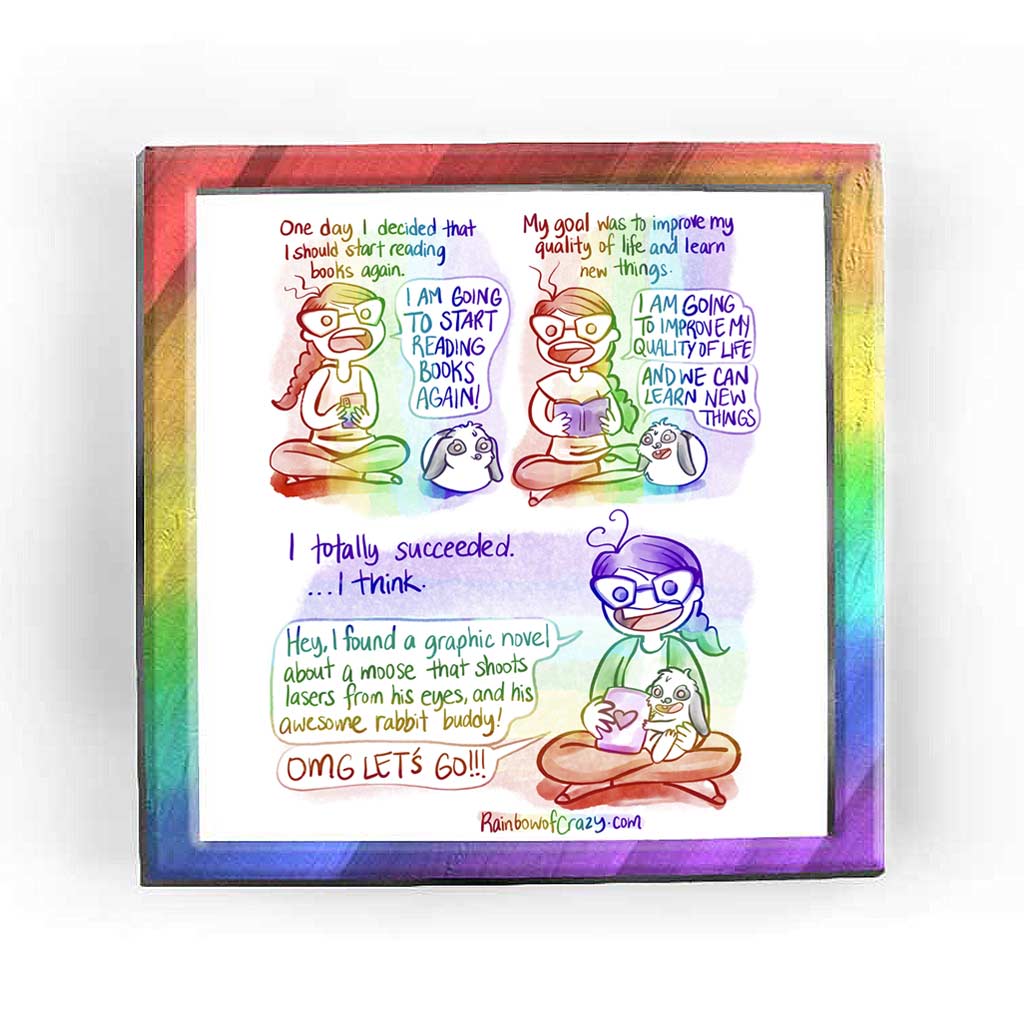 One day I decided that
I should start reading
books again.
I AM GOING
TO START
READING
BOOKS
AGAIN!
My goal was to improve my
quality of life and learn
new things.
I AM GOING
TO IMPROVE MY
QUALITY OF LIFE
AND WE CAN
LEARN NEW
THINGS
I totally succeeded.
...I think.
Hey, I found a graphic novel
about a moose that shoots
lasers from his eyes, and his
awesome rabbit buddy!
OMG LET'S GO!!!
RainbowofCrazy.com